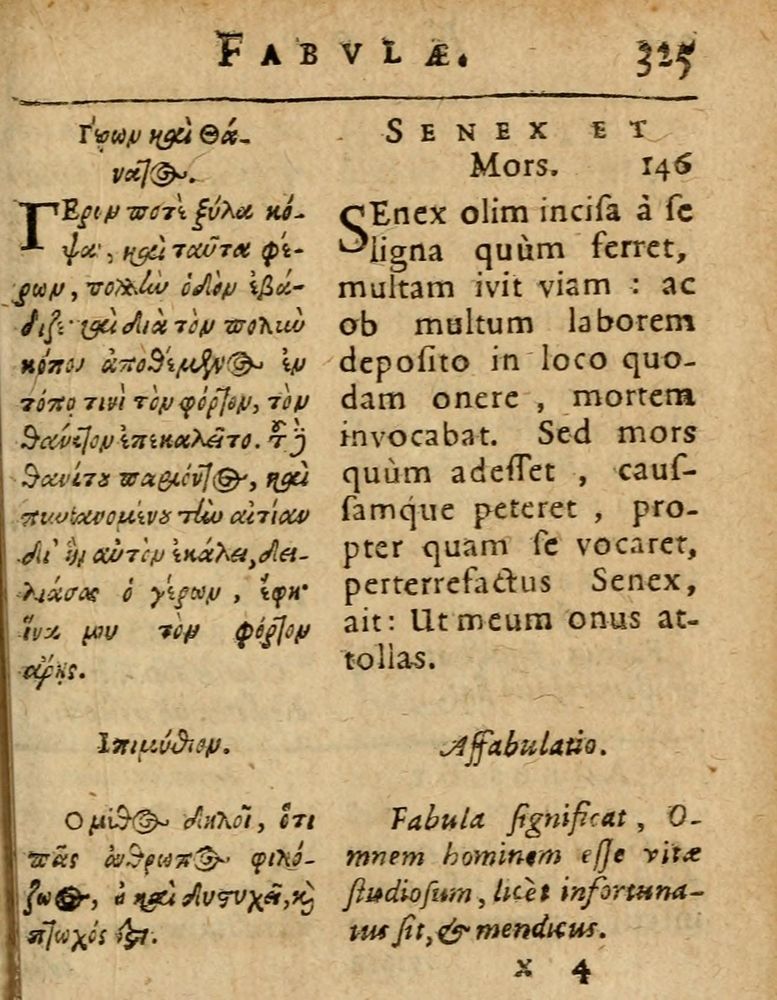 FABVLÆ. 325
Γέρων καὶ Θά-
νατος.
ΓΕρων ποτὲ ξύλα κό-
ψας, καὶ ταῦτα φέ-
ρων, πολλὴν ὁδὸν ἐβά-
διζε· καὶ διὰ τὸν πολὺν
κόπον ἀποθέμενος ἐν
τόπῳ τινὶ τὸν φόρτον, τὸν
θάνατον ἐπεκαλεῖτο. τοῦ δὲ
θανάτου παρόντος, καὶ
πυνθανομένου τὴν αἰτίαν
δι' ἣν αὐτὸν ἐκάλει, δει-
λιάσας ὁ γέρων, ἔφη·
ἵνα μου τὸν φόρτον
ἄρῃς.
Ἐπιμύθιον.
Ο μῦθος δηλοῖ, ὅτι
πᾶς ἄνθρωπος φιλό-
ζωος, εἰ καὶ δυστυχεῖ, καὶ
πτωχός ἐστι.
SENEX ET
Mors. 146
SEnex olim inciſa à ſe
ligna quùm ferret,
multam ivit viam : ac
ob multum laborem
depoſito in loco quo-
dam onere , mortem
invocabat. Sed mors
quùm adeſſet , cauſ-
ſamque peteret , pro-
pter quam ſe vocaret,
perterrefactus Senex,
ait: Ut meum onus at-
tollas.
Affabulatio.
Fabula ſignificat, O-
mnem hominem eſſe vitæ
ſtudioſum, licèt infortuna-
tus ſit, & mendicus.
x 4